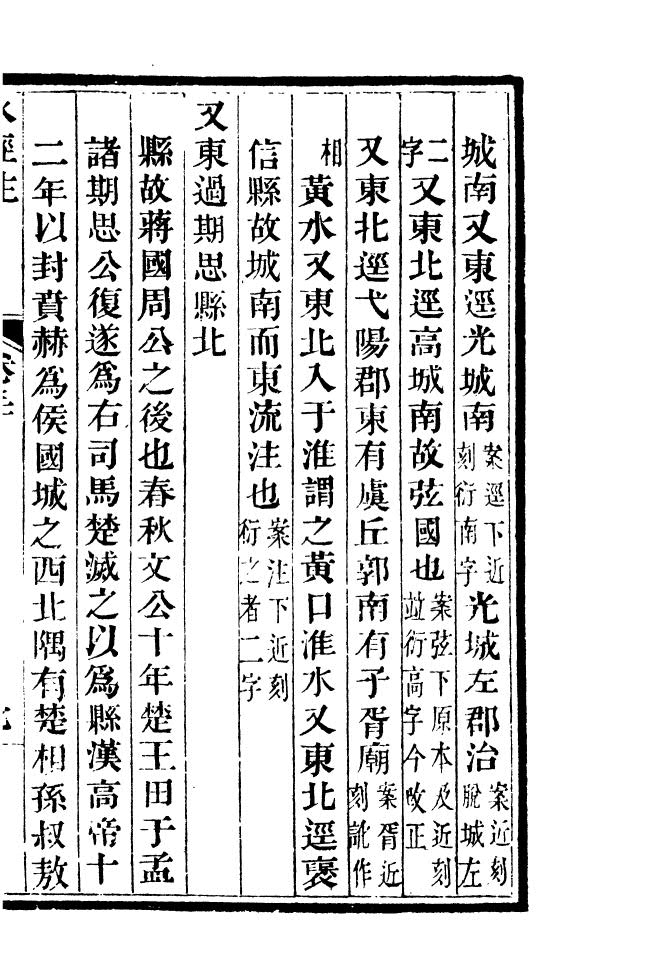 城南又東逕光城南案逕下近刻衍南字光城左郡治案近刻脫城左
二字又東北逕高城南故弦國也案弦下原本及近刻竝衍高字今改正
又東北逕弋陽郡東有虞丘郭南有子胥廟案胥近刻訛作
相黃水又東北入于淮謂之黃口淮水又東北逕襃
信縣故城南而東流注也案注下近刻衍之者二字
又東過期思縣北
縣故蔣國周公之後也春秋文公十年楚王田于孟
諸期思公復遂爲右司馬楚滅之以爲縣漢高帝十
二年以封賁赫爲侯國城之西北隅有楚相孫叔敖
水經注